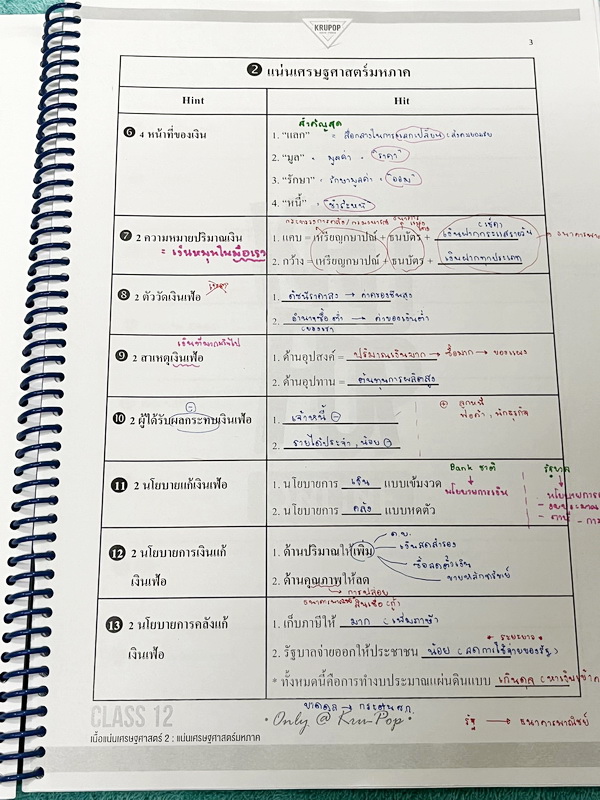 KRUPOP
3
❷ แน่นเศรษฐศาสตร์มหภาค
Hint
Hit
❻ 4 หน้าที่ของเงิน
สำคัญสุด
1. "แลก" = สื่อกลางในการแลกเปลี่ยน
2. "มูล" = มูลค่า = "ราคา"
3. "รักษา" = รักษามูลค่า = "ออม"
4. "หนี้" = "ชำระหนี้"
❼ 2 ความหมายปริมาณเงิน
= เงินหมุนในมือเรา
1. แคบ = เหรียญกษาปณ์ + ธนบัตร + เงินฝากกระแสรายวัน
2. กว้าง = เหรียญกษาปณ์ + ธนบัตร + เงินฝากทุกประเภท
❽ 2 ตัววัดเงินเฟ้อ
1. ดัชนีราคาสูง → ค่าครองชีพสูง
2. อำนาจซื้อต่ำ → ค่าของเงินต่ำ
❾ 2 สาเหตุเงินเฟ้อ
1. ด้านอุปสงค์ = ปริมาณเงินมาก → ซื้อมาก → ของแพง
2. ด้านอุปทาน = ต้นทุนการผลิตสูง
❿ 2 ผู้ได้รับผลกระทบเงินเฟ้อ
1. เจ้าหนี้ ⊖
2. รายได้ประจำ, น้อย ⊖
⊕ ลูกหนี้
พ่อค้า, นักธุรกิจ
⓫ 2 นโยบายแก้เงินเฟ้อ
1. นโยบายการ เงิน แบบเข้มงวด
2. นโยบายการ คลัง แบบหดตัว
Bank ชาติ
↓
นโยบายการเงิน
รัฐบาล
↓
⓬ 2 นโยบายการเงินแก้
เงินเฟ้อ
1. ด้านปริมาณให้เพิ่ม
เงินสดสำรอง
ซื้อลดตั๋วเงิน
ขายหลักทรัพย์
2. ด้านคุณภาพให้ลด
⓭ 2 นโยบายการคลังแก้
เงินเฟ้อ
1. เก็บภาษีให้ มาก (เพิ่มภาษี)
2. รัฐบาลจ่ายออกให้ประชาชน น้อย (ลดการใช้จ่ายของรัฐ)
* ทั้งหมดนี้คือการทำงบประมาณแผ่นดินแบบ เกินดุล
ขาดดุล → กระตุ้นศก.
รัฐ → ธนาคารพาณิชย์
CLASS 12
• Only @ Kru-Pop •
เนื้อแน่นเศรษฐศาสตร์ 2 : แน่นเศรษฐศาสตร์มหภาค